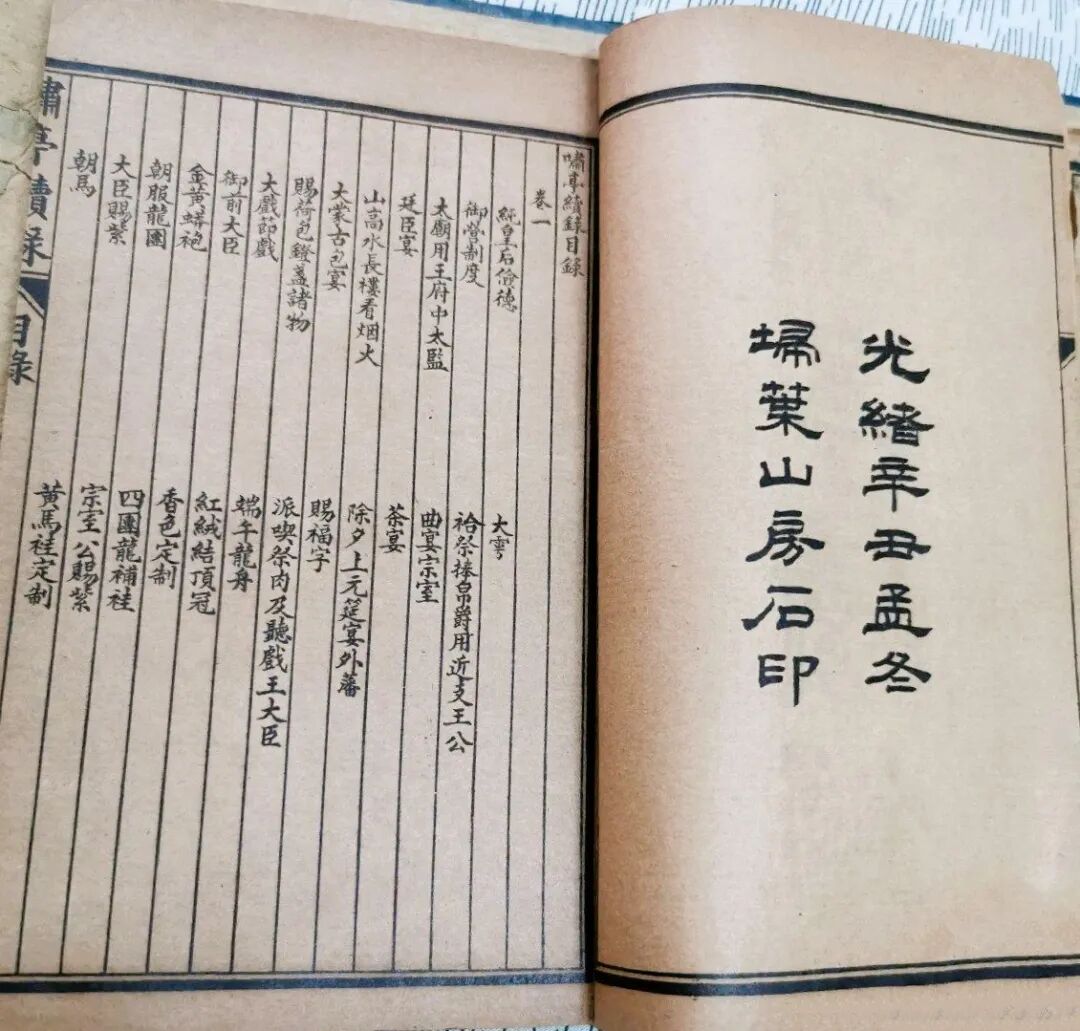 光緒辛丑孟冬
埽葉山房石印
嘯亭續錄目錄
卷一
純皇后儉德　大雩
御營制度　祫祭捧帛爵用近支王公
太廟用王府中太監　曲宴宗室
廷臣宴　茶宴
山高水長樓看烟火　除夕上元筵宴外藩
大蒙古包宴　賜福字
賜荷包鐙盞諸物　派喫祭肉及聽戲王大臣
大戲節戲　端午龍舟
御前大臣　紅絨結頂冠
金黃蟒袍　香色定制
朝服龍團　四團龍補褂
大臣賜紫　宗室公賜紫
朝馬　黃馬褂定制
嘯亭續錄　目錄